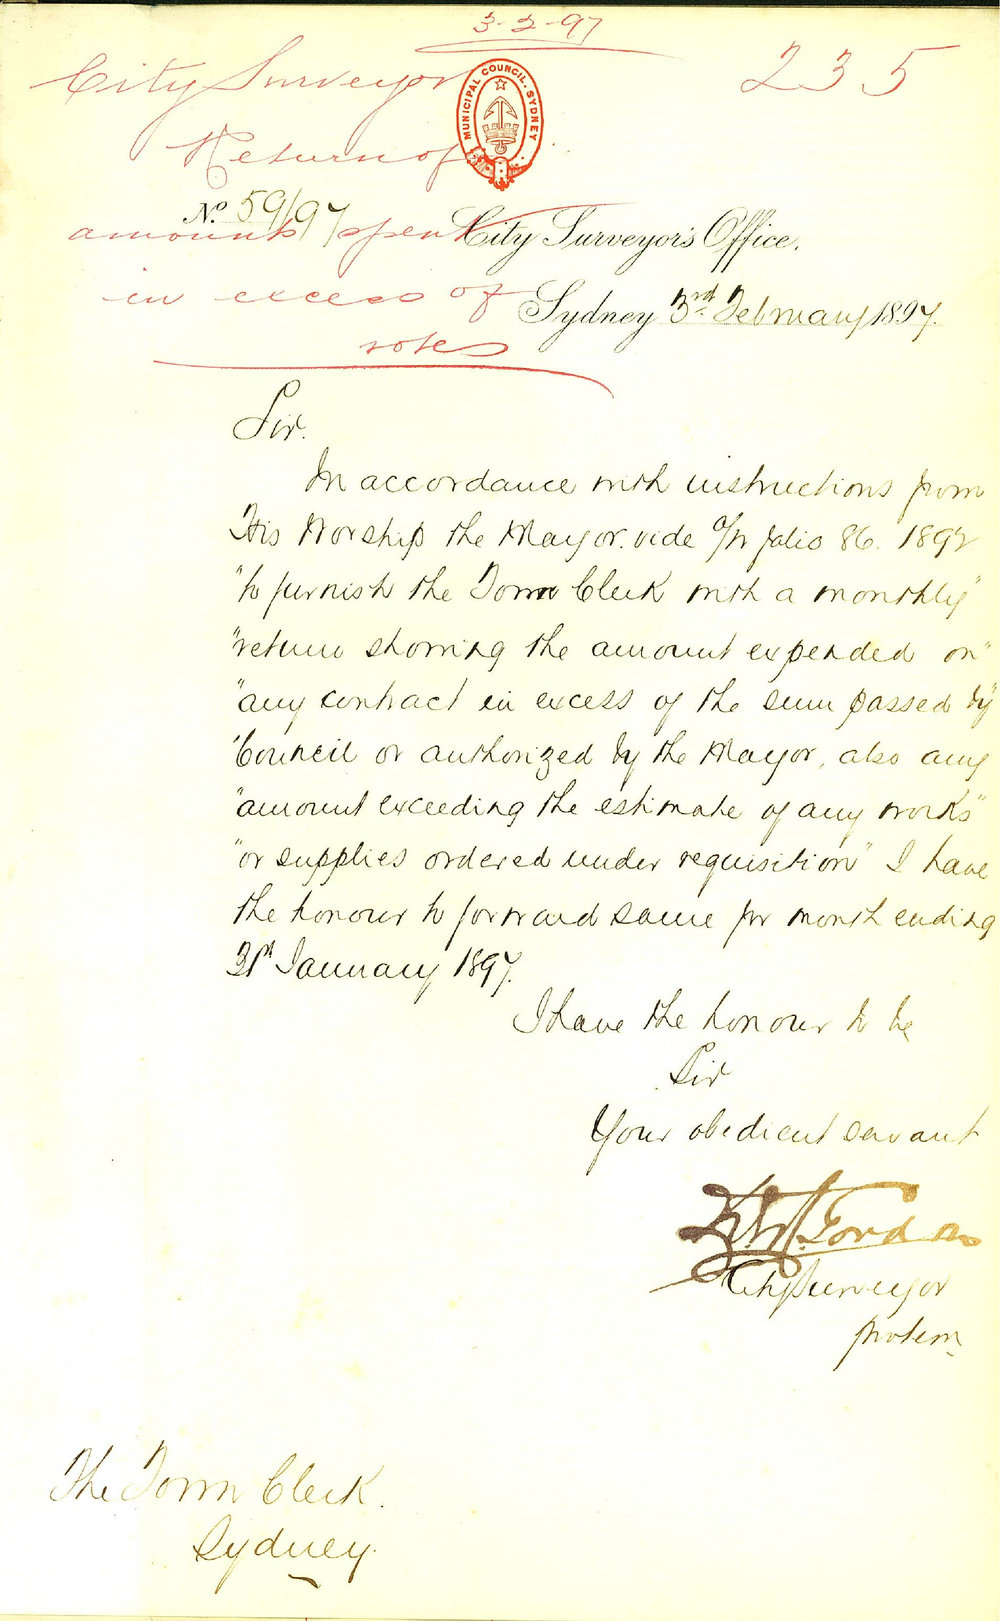 3-2-97
City Surveyor
235
MUNICIPAL COUNCIL. SYDNEY
Return of
No. 59/97
amounts spent
City Surveyor's Office.
in excess of
Sydney 3rd February 1897.
votes
Sir.
In accordance with instructions from
His Worship the Mayor. vide folio 86. 1892
"to furnish the Town Clerk with a monthly"
"return showing the amount expended on"
"any contract in excess of the sum passed by"
"Council or authorized by the Mayor, also any
"amount exceeding the estimate of any works"
"or supplies ordered under requisition" I have
the honour to forward same for month ending
31st January 1897.
I have the honour to be
Sir
Your obedient servant
Gordon
City Surveyor
protem.
The Town Clerk.
Sydney.